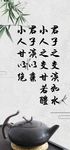 君子之交淡如水
小人之交甘若醴
君子淡以親
小人甘以绝